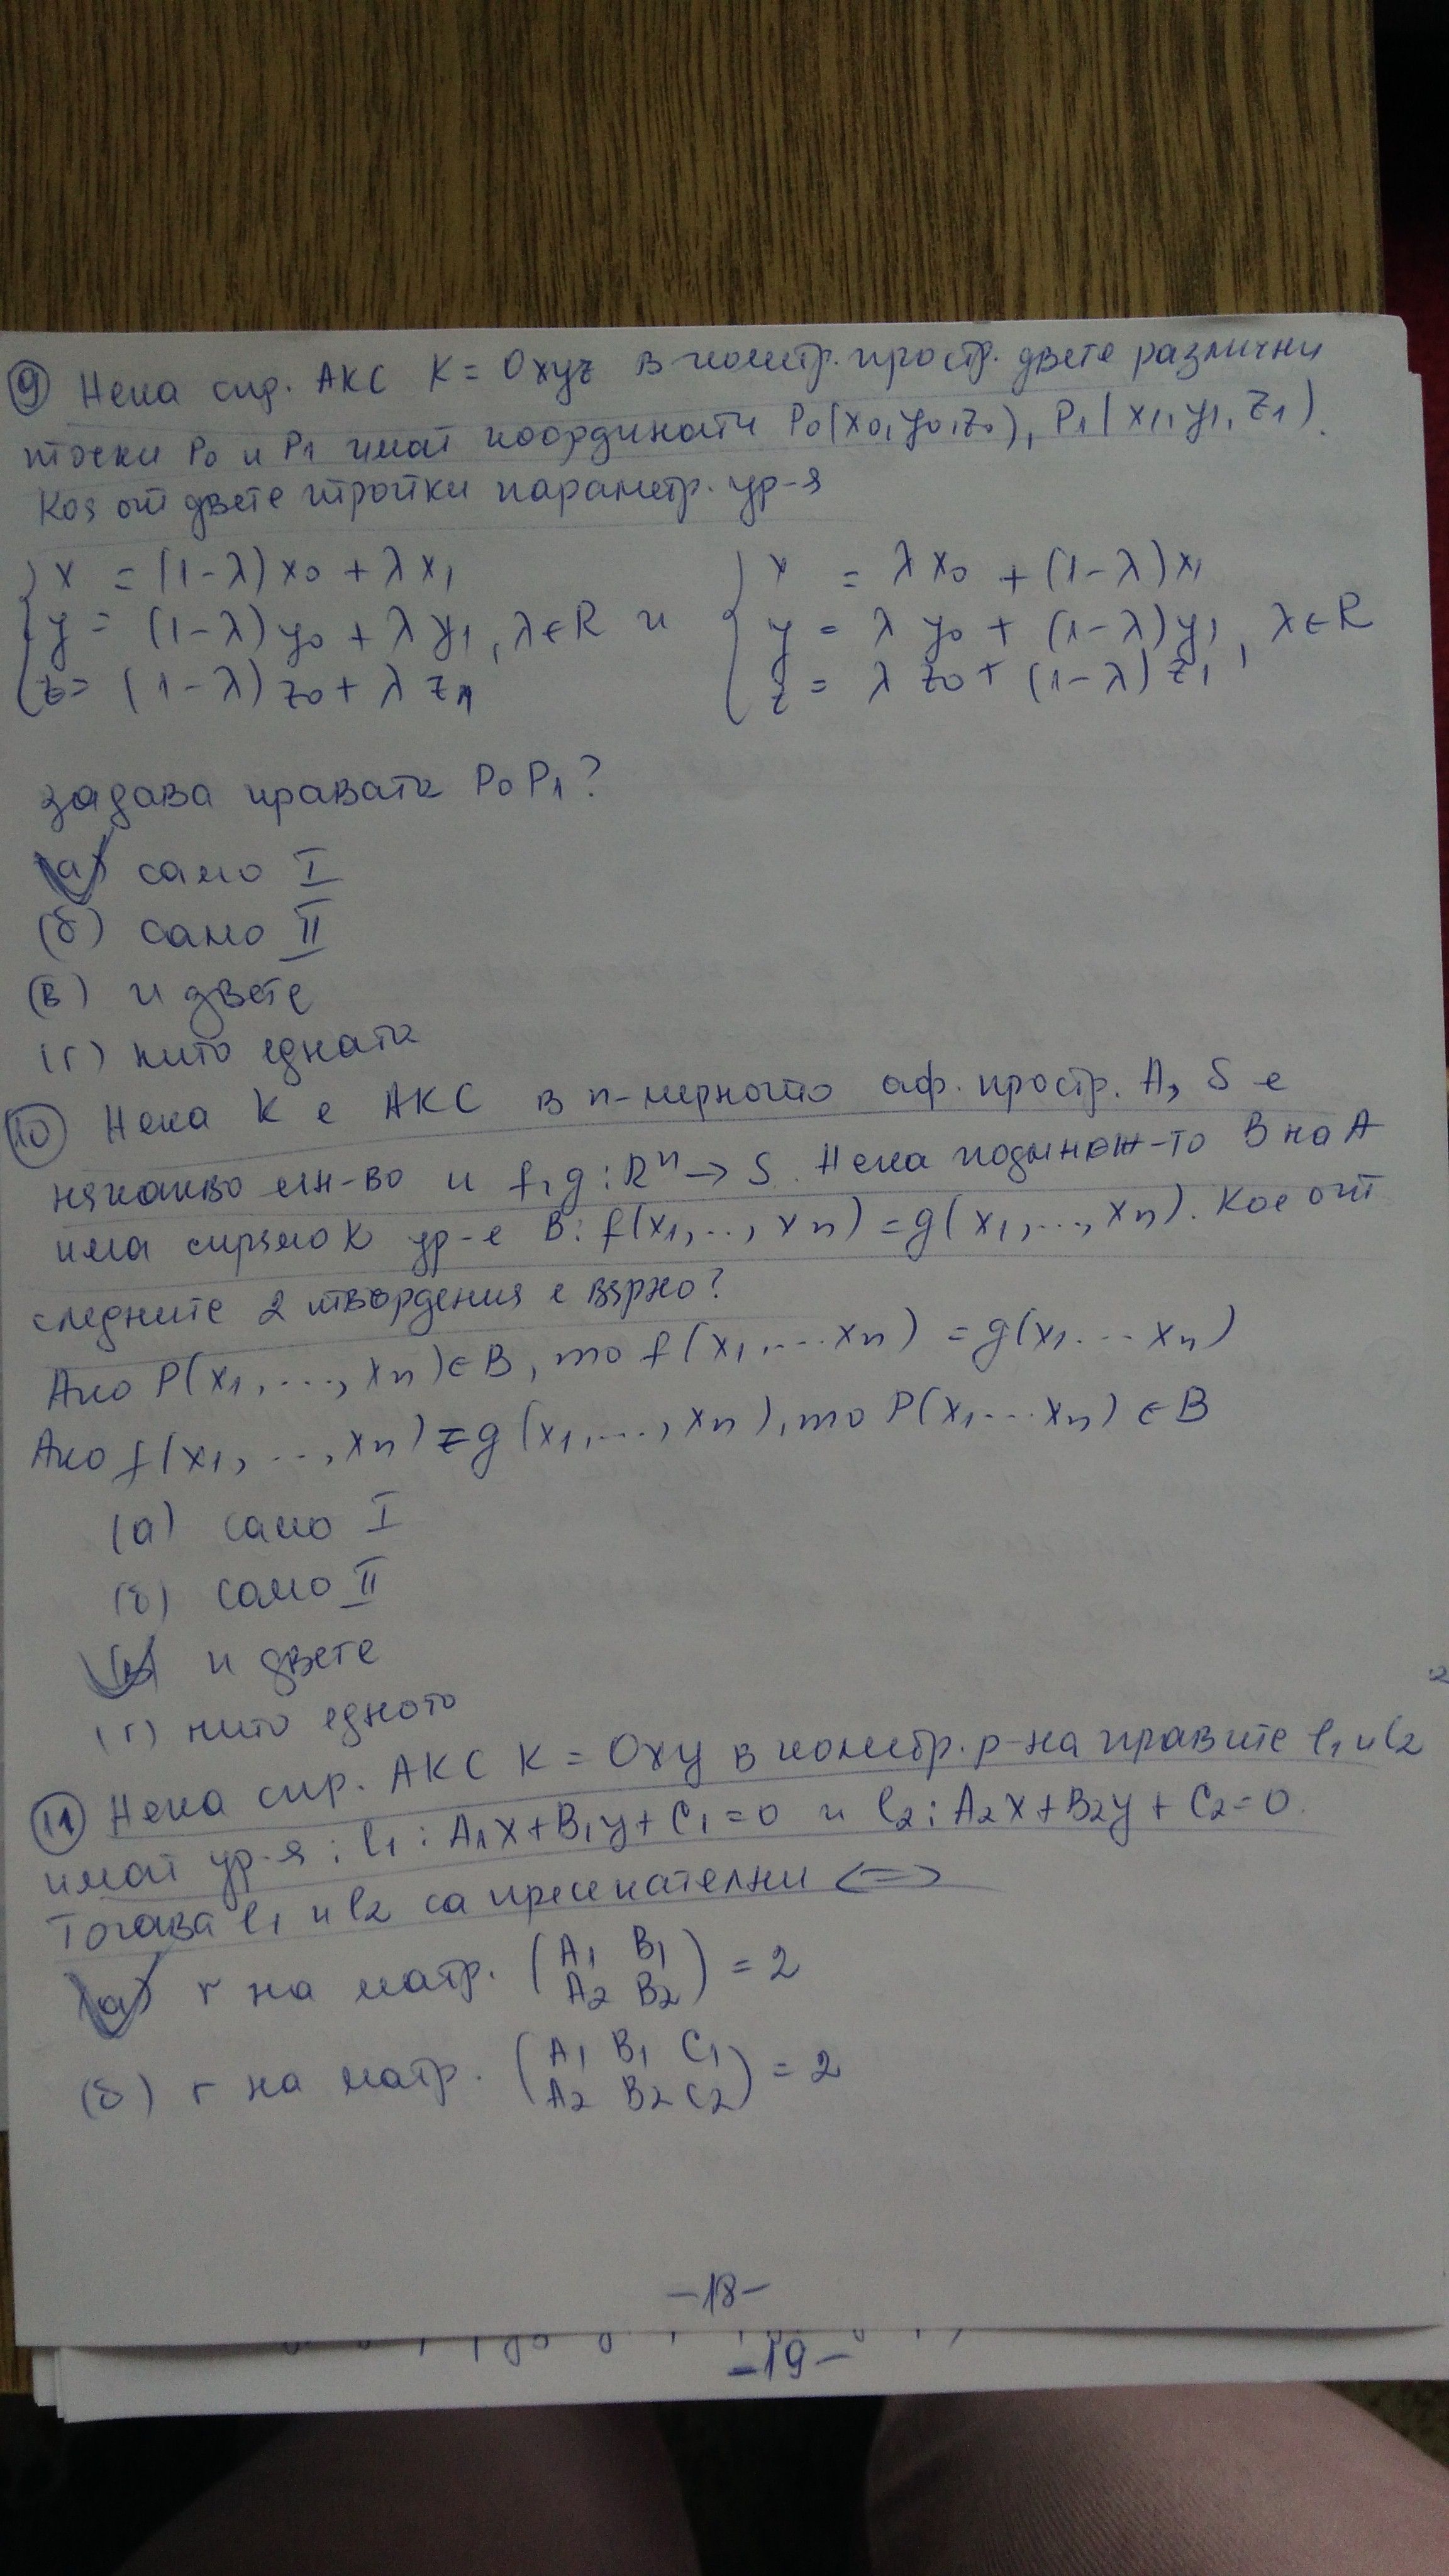 ⑨ Нека спр. АКС K = Oxyz в геометр. простр. двете различни
точки P₀ и P₁ имат координати P₀(x₀, y₀, z₀), P₁(x₁, y₁, z₁).
Коя от двете тройки параметр. ур-я
{ x = (1-λ)x₀ + λx₁
{ y = (1-λ)y₀ + λy₁, λ∈R и
{ z = (1-λ)z₀ + λz₁
{ x = λx₀ + (1-λ)x₁
{ y = λy₀ + (1-λ)y₁, λ∈R
{ z = λz₀ + (1-λ)z₁,
задава правата P₀P₁?
(а) само I
(б) само II
(в) и двете
(г) нито едната
⑩ Нека K е АКС в n-мерното аф. простр. A, S е
някакво мн-во и f, g : Rⁿ → S. Нека подмнож-то B на A
има спрямо K ур-е B: f(x₁, .., xₙ) = g(x₁, ..., xₙ). Кое от
следните 2 твърдения е вярно?
Ако P(x₁, ..., xₙ)∈B, то f(x₁, ... xₙ) = g(x₁ ... xₙ)
Ако f(x₁, ..., xₙ) = g(x₁, ..., xₙ), то P(x₁ ... xₙ) ∈ B
(а) само I
(б) само II
(в) и двете
(г) нито едното
⑪ Нека спр. АКС K = Oxy в геометр. р-на правите l₁ и l₂
имат ур-я : l₁ : A₁x + B₁y + C₁ = 0 и l₂ : A₂x + B₂y + C₂ = 0.
Тогава l₁ и l₂ са пресекателни <=>
(а) r на матр. (A₁ B₁ / A₂ B₂) = 2
(б) r на матр. (A₁ B₁ C₁ / A₂ B₂ C₂) = 2
-18-
-19-